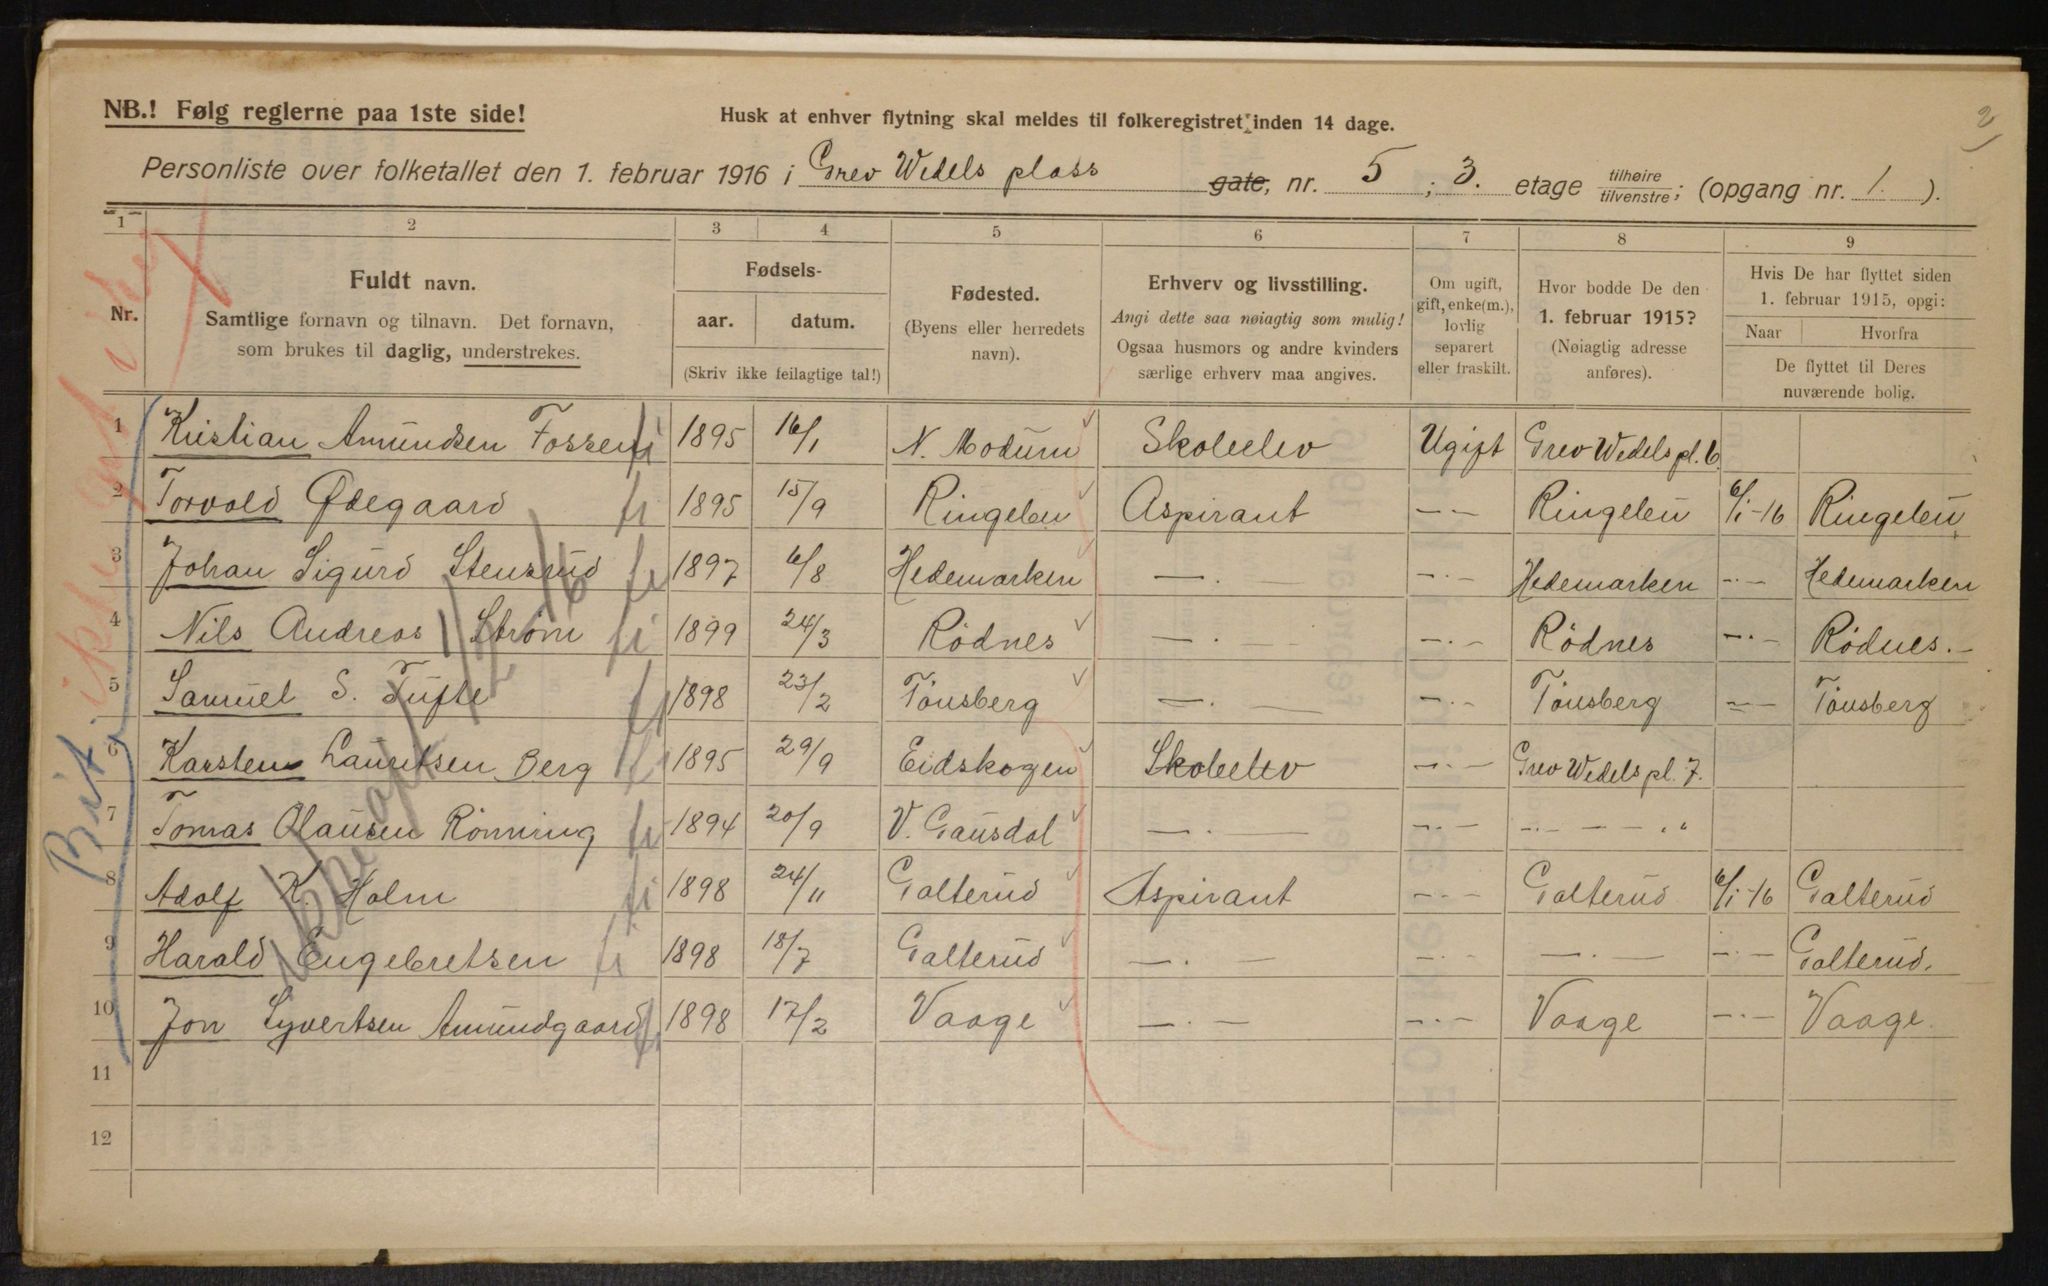 2
NB.! Følg reglerne paa 1ste side!
Husk at enhver flytning skal meldes til folkeregistret inden 14 dage.
Personliste over folketallet den 1. februar 1916 i Grev Wedels plass gate, nr. 5 ; 3. etage tilhøire tilvenstre ; (opgang nr. 1. ).
1 2 3 4 5 6 7 8 9
Nr.
Fuldt navn.
Samtlige fornavn og tilnavn. Det fornavn,
som brukes til daglig, understrekes.
Fødsels-
aar. datum.
(Skriv ikke feilagtige tal!)
Fødested.
(Byens eller herredets
navn).
Erhverv og livsstilling.
Angi dette saa nøiagtig som mulig!
Ogsaa husmors og andre kvinders
særlige erhverv maa angives.
Om ugift,
gift, enke(m.),
lovlig
separert
eller fraskilt.
Hvor bodde De den
1. februar 1915?
(Nøiagtig adresse
anføres).
Hvis De har flyttet siden
1. februar 1915, opgi:
Naar Hvorfra
De flyttet til Deres
nuværende bolig.
1 Kristian Amundsen Fossen 1895 16/1 N. Modum Skoleelev Ugift Grev Wedels pl. 6.
2 Torvold Ødegaard 1895 15/9 Ringebu Aspirant — — Ringebu 6/1-16 Ringebu
3 Johan Sigurd Stensrud 1897 6/8 Hedemarken — . — — . — Hedemarken — . — Hedemarken
4 Nils Andreas Strøm 1899 24/3 Rödnes — . — — . — Rödnes — . — Rödnes. —
5 Samuel S. Tufte 1898 23/2 Tönsberg — . — — . — Tönsberg — — Tönsberg
6 Karsten Lauritsen Berg 1895 29/9 Eidskogen Skoleelev — . — Grev Wedels pl. 7.
7 Tomas Olausen Rönning 1894 20/9 V. Gausdal — . — — . — — . — — . "
8 Adolf K. Holm 1898 24/11 Galterud Aspirant — . — Galterud 6/1-16 Galterud
9 Harald Engebretsen 1898 18/7 Galterud — . — — . — — . — — . — Galterud.
10 Jon Syvertsen Amundgaard 1898 17/2 Vaage — . — — . — Vaage — . — Vaage.
11
12